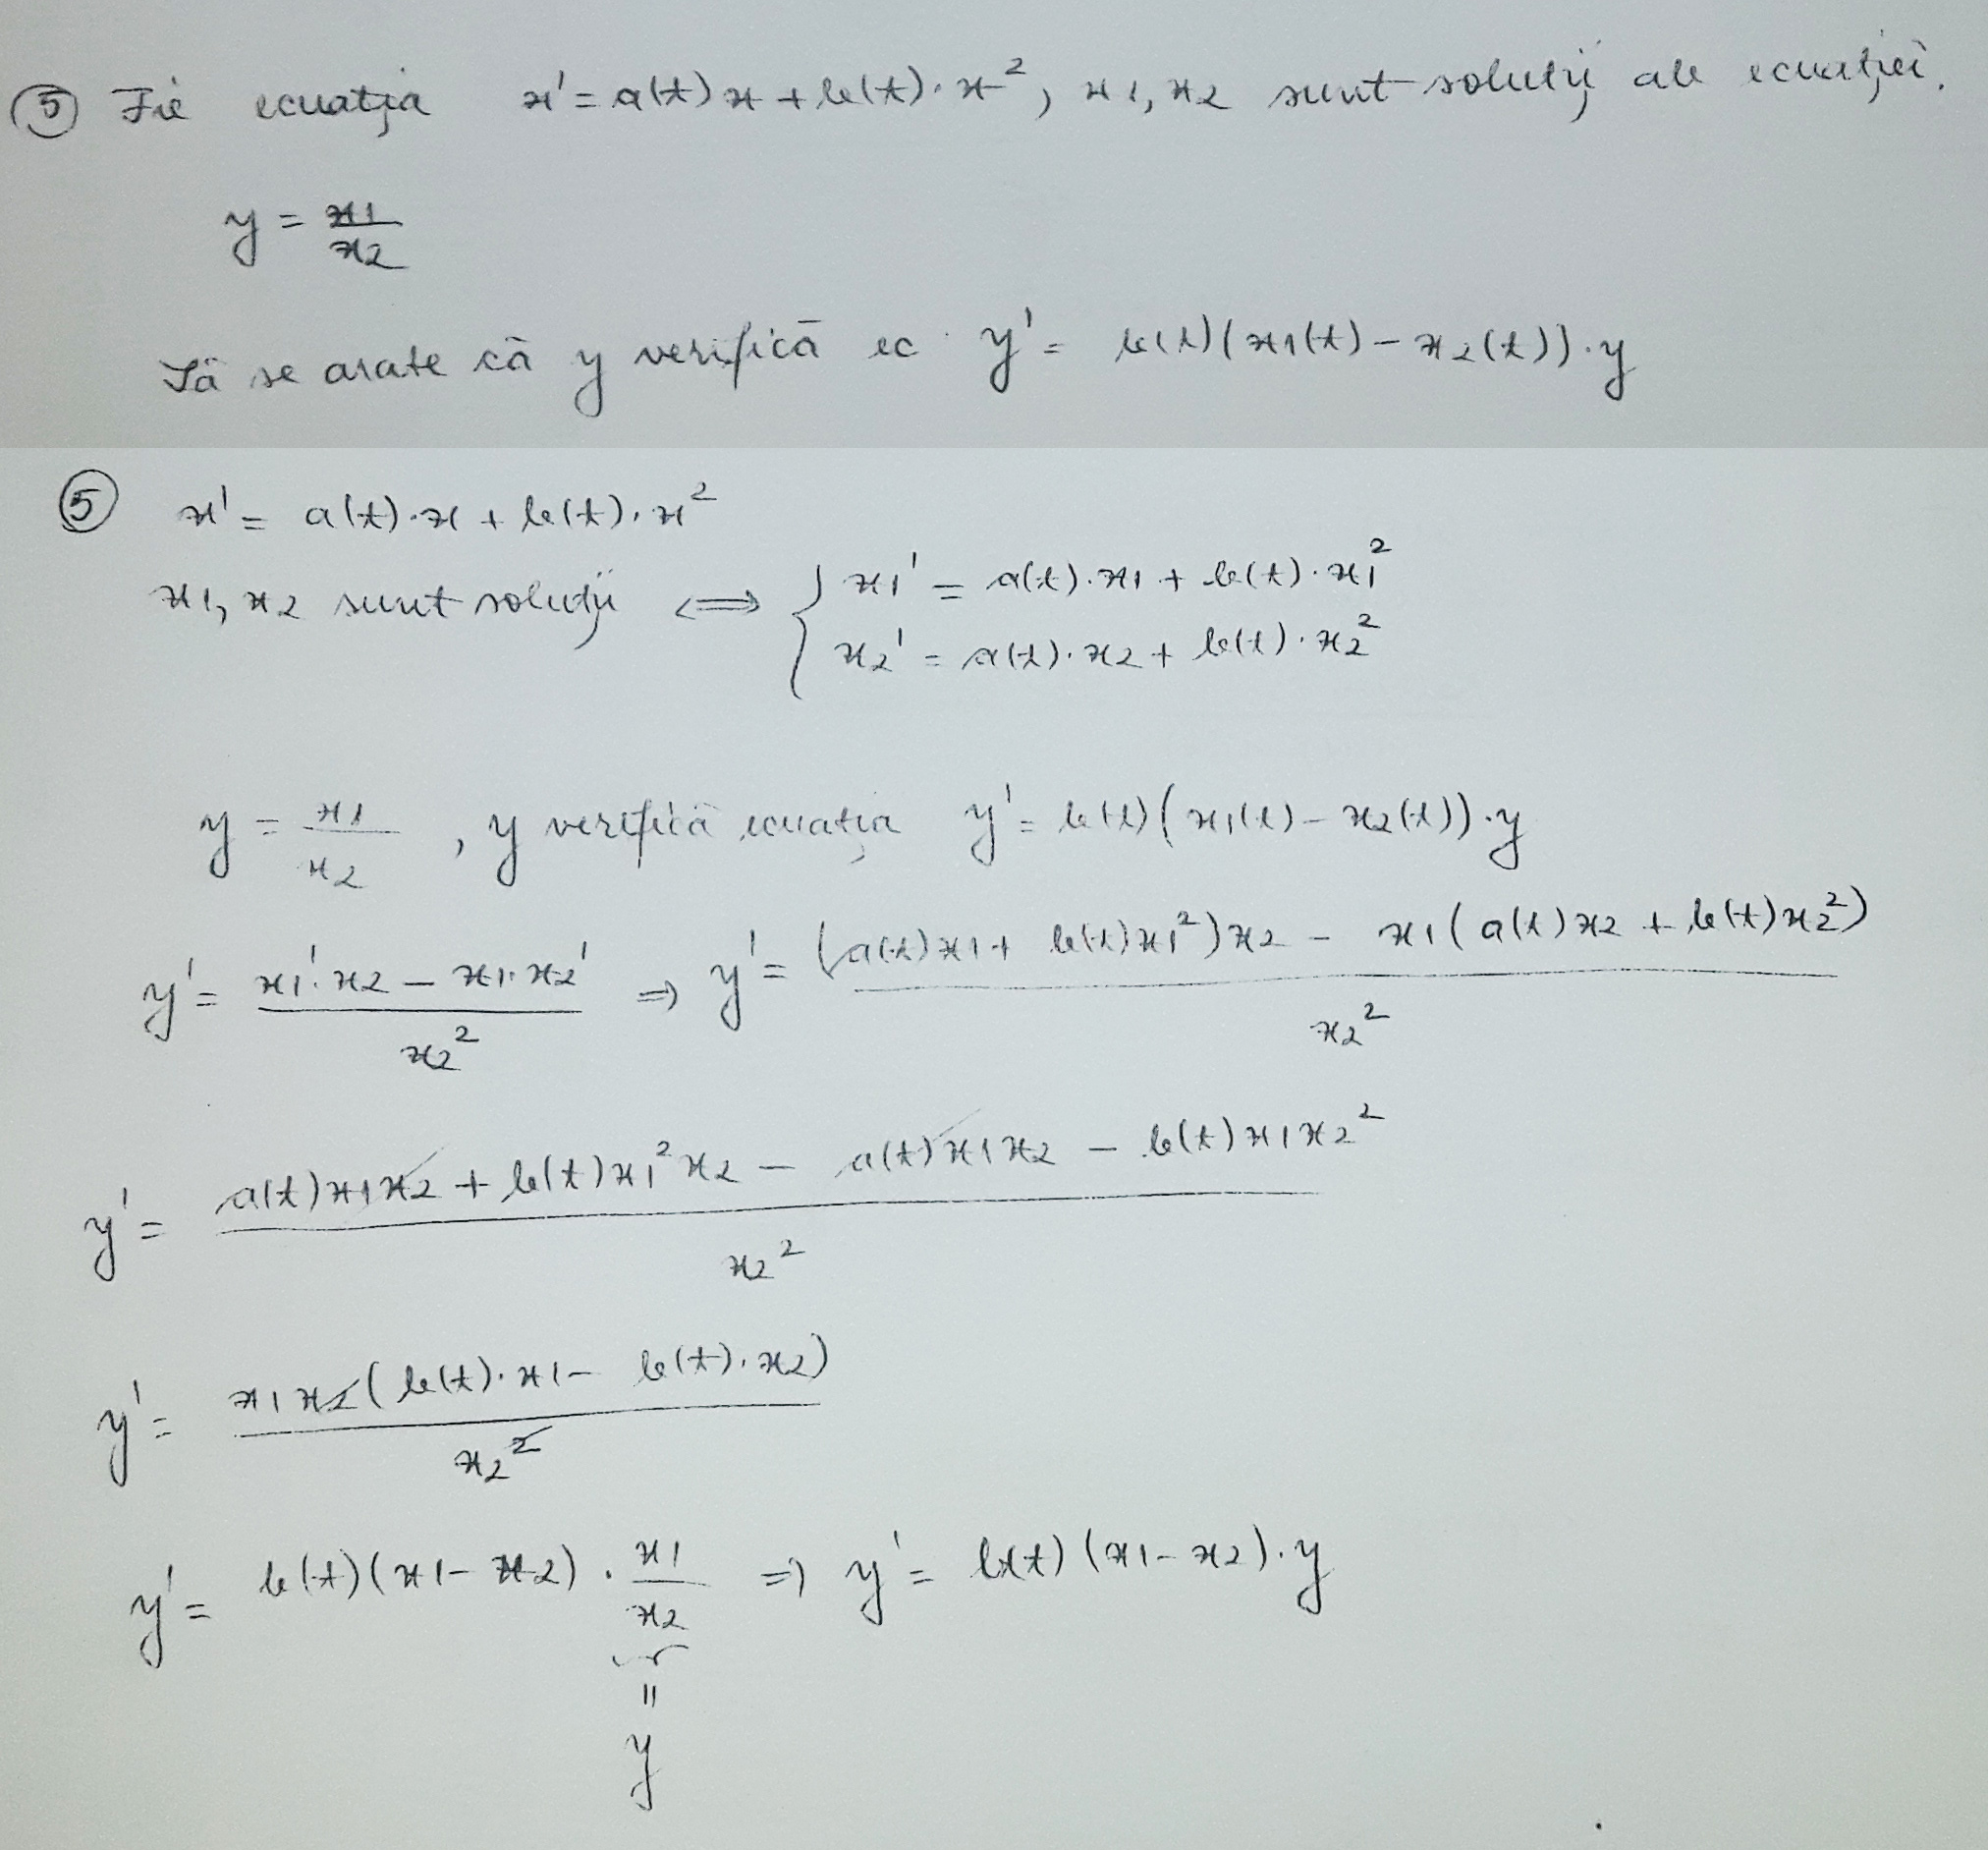 ⑤ Fie ecuația x' = a(t)x + b(t)·x², x1, x2 sunt soluții ale ecuației.
y = x1/x2
Să se arate că y verifică ec. y' = b(t)(x1(t) - x2(t))·y
⑤ x' = a(t)·x + b(t)·x²
x1, x2 sunt soluții ⟺ { x1' = a(t)·x1 + b(t)·x1²
x2' = a(t)·x2 + b(t)·x2²
y = x1/x2, y verifică ecuația y' = b(t)(x1(t) - x2(t))·y
y' = (x1'·x2 - x1·x2')/x2² ⇒ y' = ((a(t)x1 + b(t)x1²)x2 - x1(a(t)x2 + b(t)x2²))/x2²
y' = (a(t)x1x2 + b(t)x1²x2 - a(t)x1x2 - b(t)x1x2²)/x2²
y' = x1x2(b(t)·x1 - b(t)·x2)/x2²
y' = b(t)(x1 - x2)·x1/x2 ⇒ y' = b(t)(x1 - x2)·y
=
y